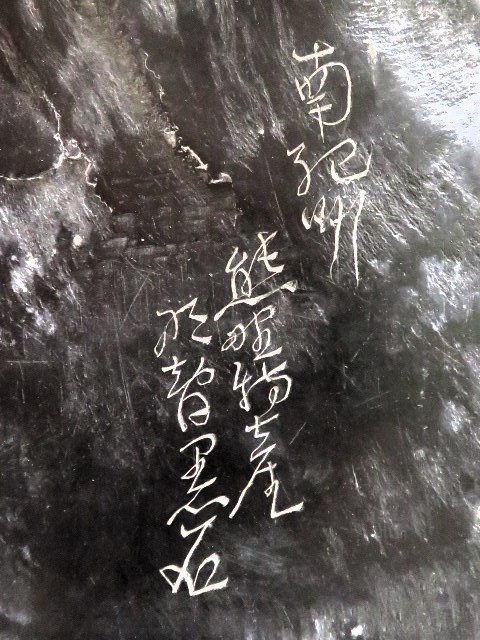 南紀州
熊野特産
那智黒石